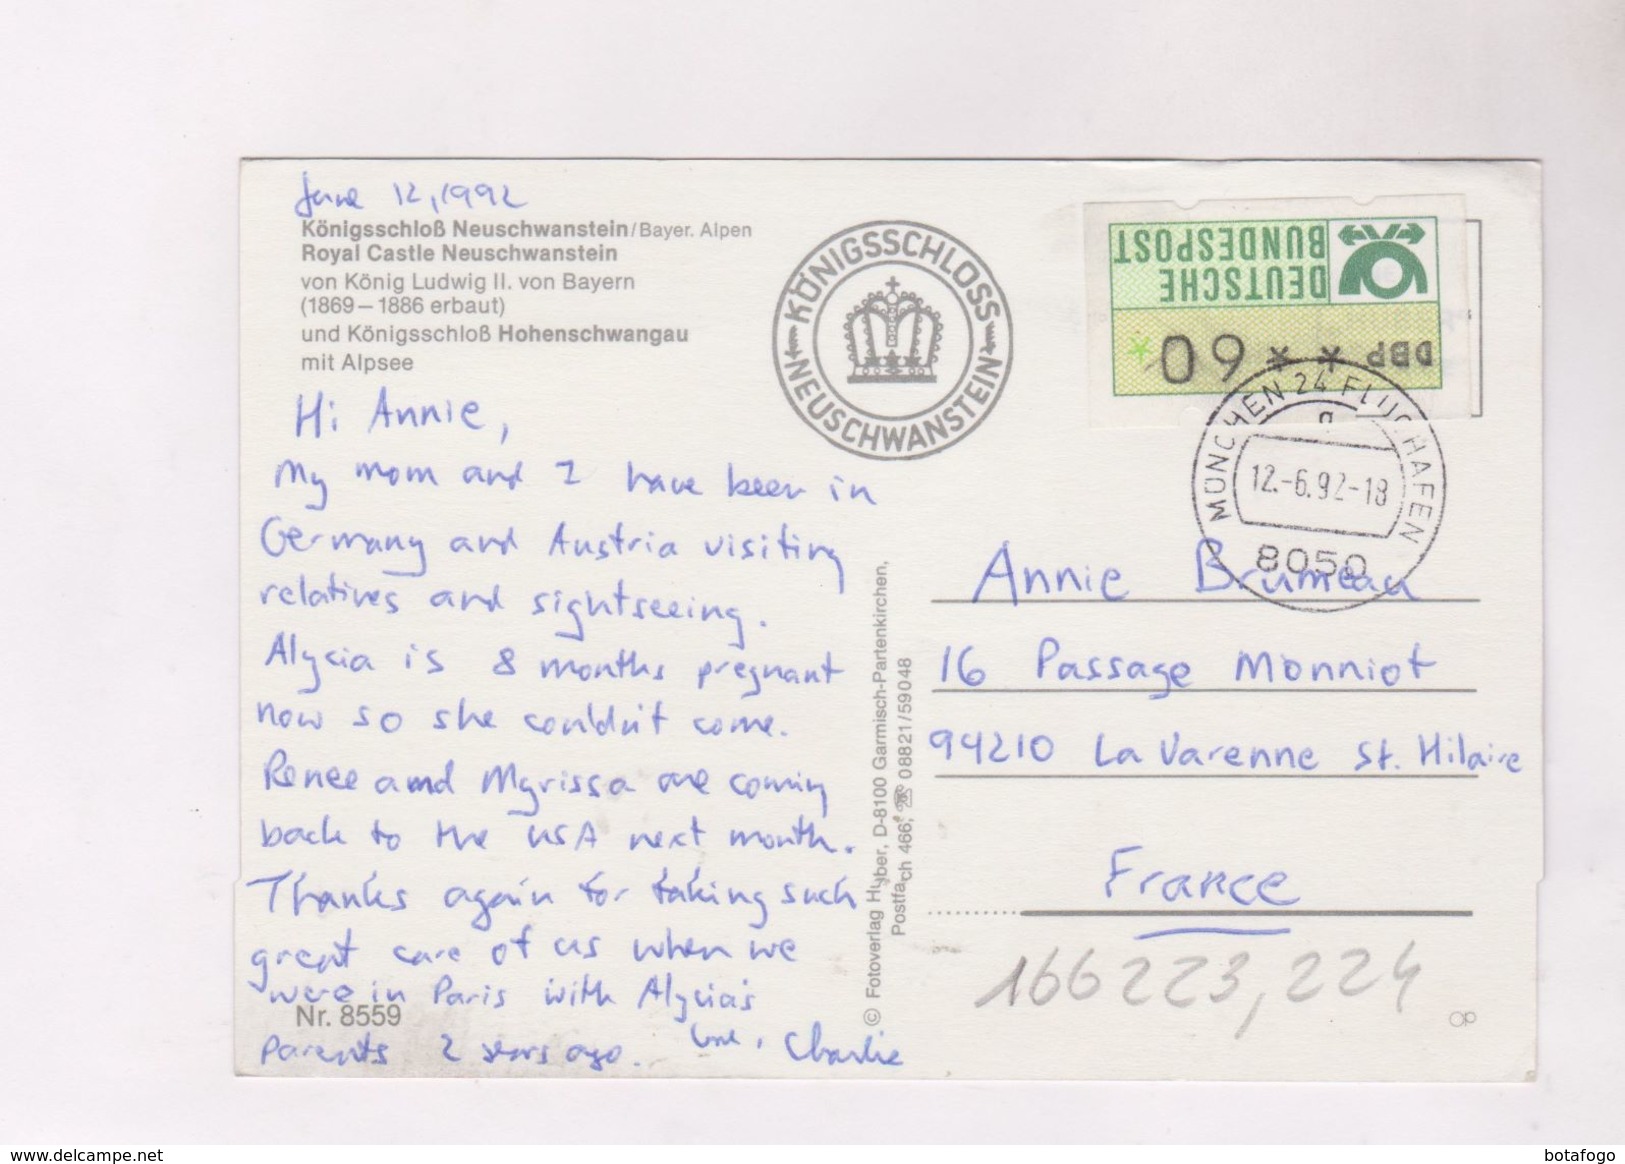 June 12, 1992
Königsschloß Neuschwanstein/Bayer. Alpen
Royal Castle Neuschwanstein
von König Ludwig II. von Bayern
(1869–1886 erbaut)
und Königsschloß Hohenschwangau
mit Alpsee
Hi Annie,
My mom and I have been in
Germany and Austria visiting
relatives and sightseeing.
Alycia is 8 months pregnant
now so she couldn't come.
Renee and Myrissa are coming
back to the USA next month.
Thanks again for taking such
great care of us when we
were in Paris with Alycia's
Nr. 8559
parents 2 years ago. Love, Charlie
KÖNIGSSCHLOSS
NEUSCHWANSTEIN
© Fotoverlag Huber, D-8100 Garmisch-Partenkirchen,
Postfach 466, ☏ 08821/59048
DEUTSCHE
BUNDESPOST
DBP ** 60 *
MÜNCHEN 24 FLUGHAFEN
a
12.-6.92-18
8050
Annie Brumeau
16 Passage Monniot
94210 La Varenne St. Hilaire
France
166223,224
www.delcampe.net
botafogo